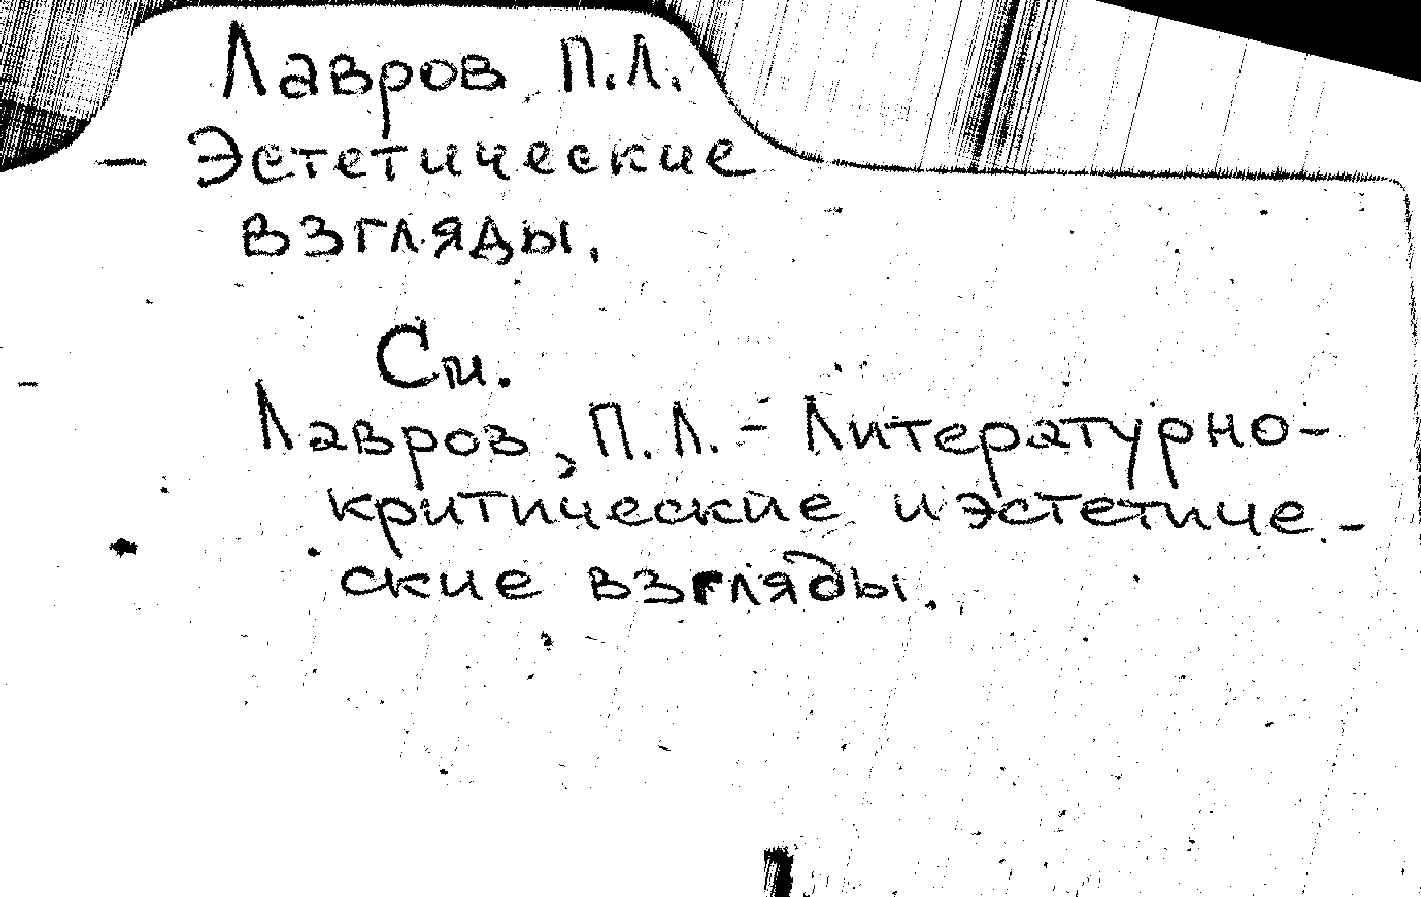 Лавров П.Л.
— Эстетические
взгляды.
См.
Лавров, П.Л. – Литературно-
критические и эстетиче-
ские взгляды.